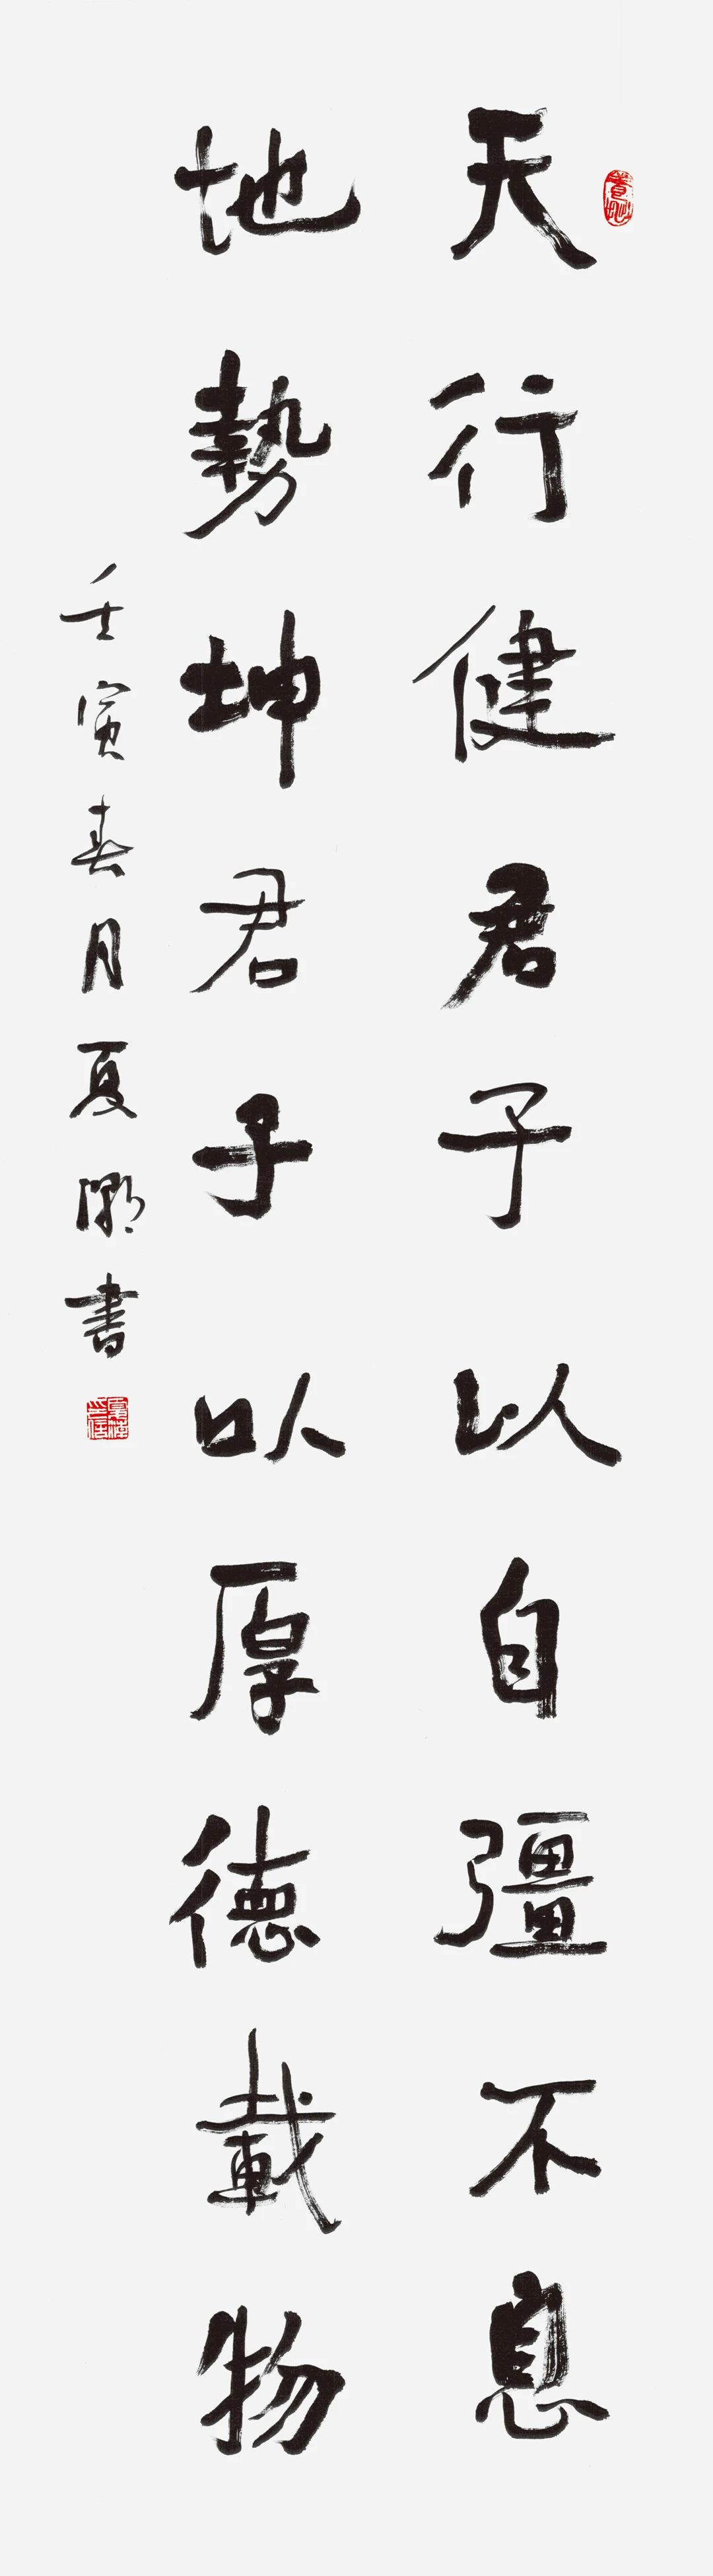 天行健君子以自彊不息
地勢坤君子以厚德載物
壬寅春月夏潮書